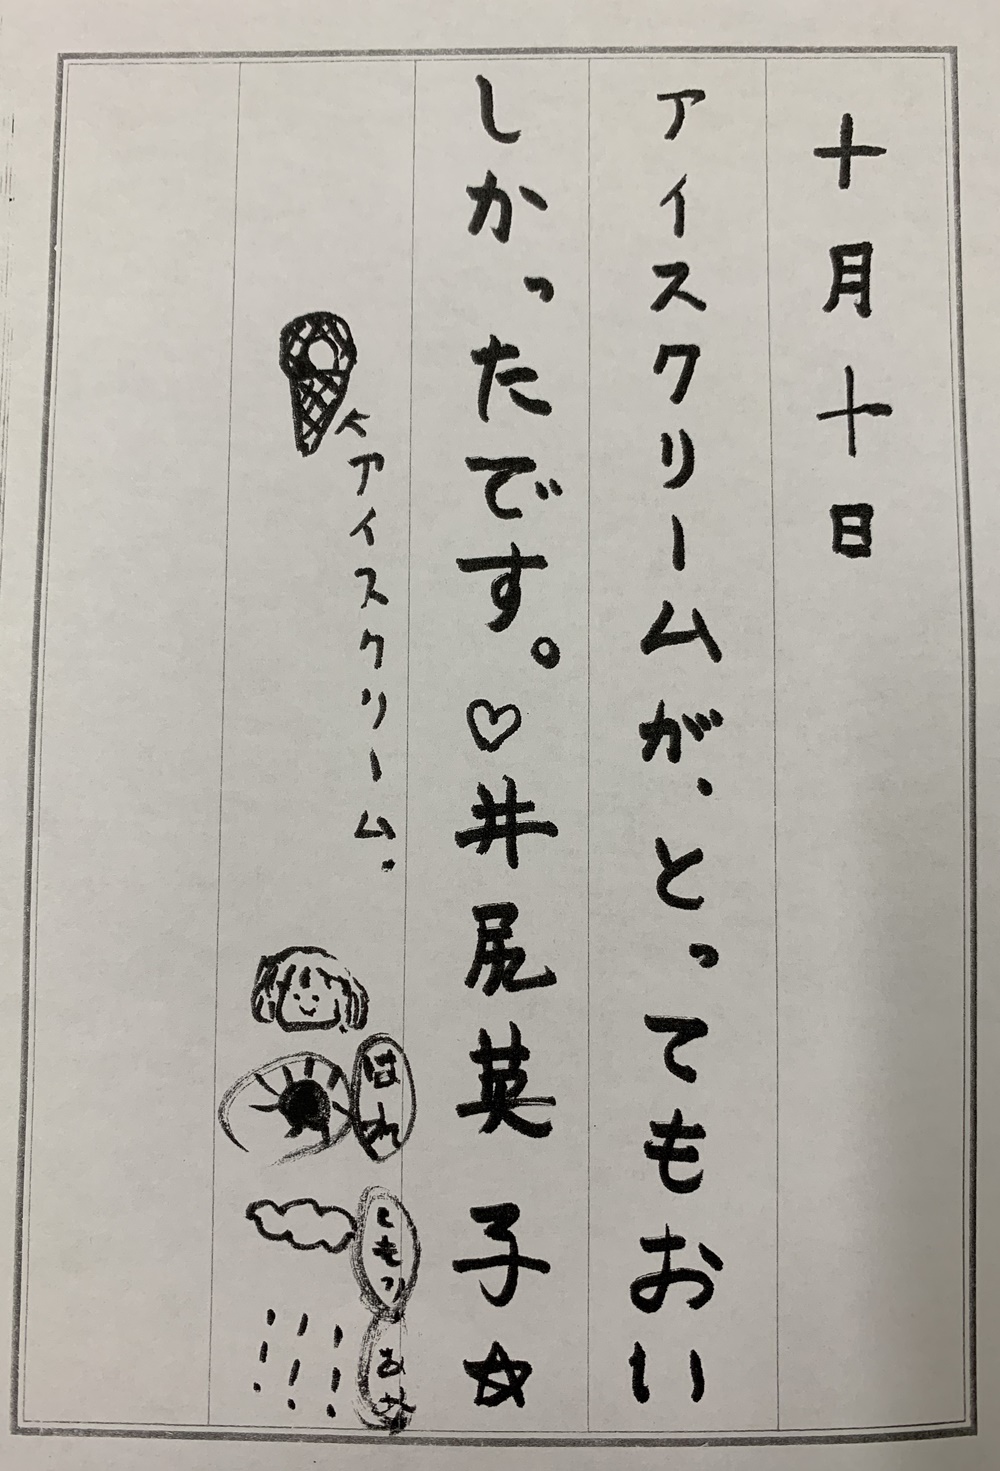 十月十日
アイスクリームが、とってもおい
しかったです。♡井尻英子☆
アイスクリーム.
はれ
くもり
あめ